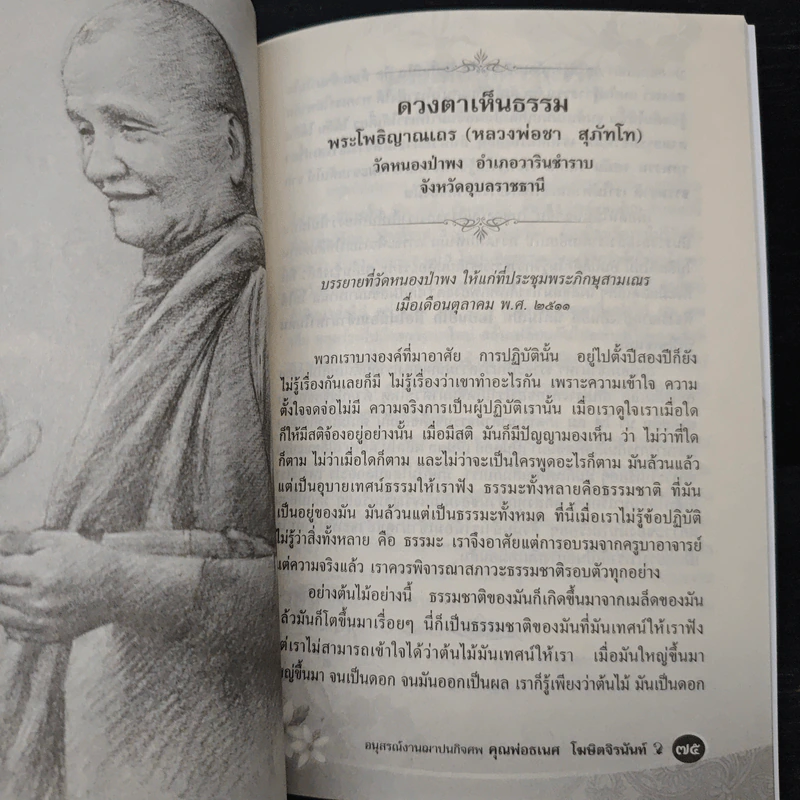 ดวงตาเห็นธรรม
พระโพธิญาณเถร (หลวงพ่อชา สุภัทโท)
วัดหนองป่าพง อำเภอวารินชำราบ
จังหวัดอุบลราชธานี
บรรยายที่วัดหนองป่าพง ให้แก่ที่ประชุมพระภิกษุสามเณร
เมื่อเดือนตุลาคม พ.ศ. ๒๕๑๑
พวกเราบางองค์ที่มาอาศัย การปฏิบัตินั้น อยู่ไปตั้งปีสองปีก็ยัง
ไม่รู้เรื่องกันเลยก็มี ไม่รู้เรื่องว่าเขาทำอะไรกัน เพราะความเข้าใจ ความ
ตั้งใจจดจ่อไม่มี ความจริงการเป็นผู้ปฏิบัติเรานั้น เมื่อเราดูใจเราเมื่อใด
ก็ให้มีสติจ้องอยู่อย่างนั้น เมื่อมีสติ มันก็มีปัญญามองเห็น ว่า ไม่ว่าที่ใด
ก็ตาม ไม่ว่าเมื่อใดก็ตาม และไม่ว่าจะเป็นใครพูดอะไรก็ตาม มันล้วนแล้ว
แต่เป็นอุบายเทศน์ธรรมให้เราฟัง ธรรมะทั้งหลายคือธรรมชาติ ที่มัน
เป็นอยู่ของมัน มันล้วนแต่เป็นธรรมะทั้งหมด ที่นี้เมื่อเราไม่รู้ข้อปฏิบัติ
ไม่รู้ว่าสิ่งทั้งหลาย คือ ธรรมะ เราจึงอาศัยแต่การอบรมจากครูบาอาจารย์
แต่ความจริงแล้ว เราควรพิจารณาสภาวะธรรมชาติรอบตัวทุกอย่าง
อย่างต้นไม้อย่างนี้ ธรรมชาติของมันก็เกิดขึ้นมาจากเมล็ดของมัน
ล้วมันก็โตขึ้นมาเรื่อยๆ นี่ก็เป็นธรรมชาติของมันที่มันเทศน์ให้เราฟัง
ต่เราไม่สามารถเข้าใจได้ว่าต้นไม้มันเทศน์ให้เรา เมื่อมันใหญ่ขึ้นมา
หญ่ขึ้นมา จนเป็นดอก จนมันออกเป็นผล เราก็รู้เพียงว่าต้นไม้ มันเป็นดอก
อนุสรณ์งานฌาปนกิจศพ คุณพ่อธเนศ โฆษิตจิรนันท์ ๗๕